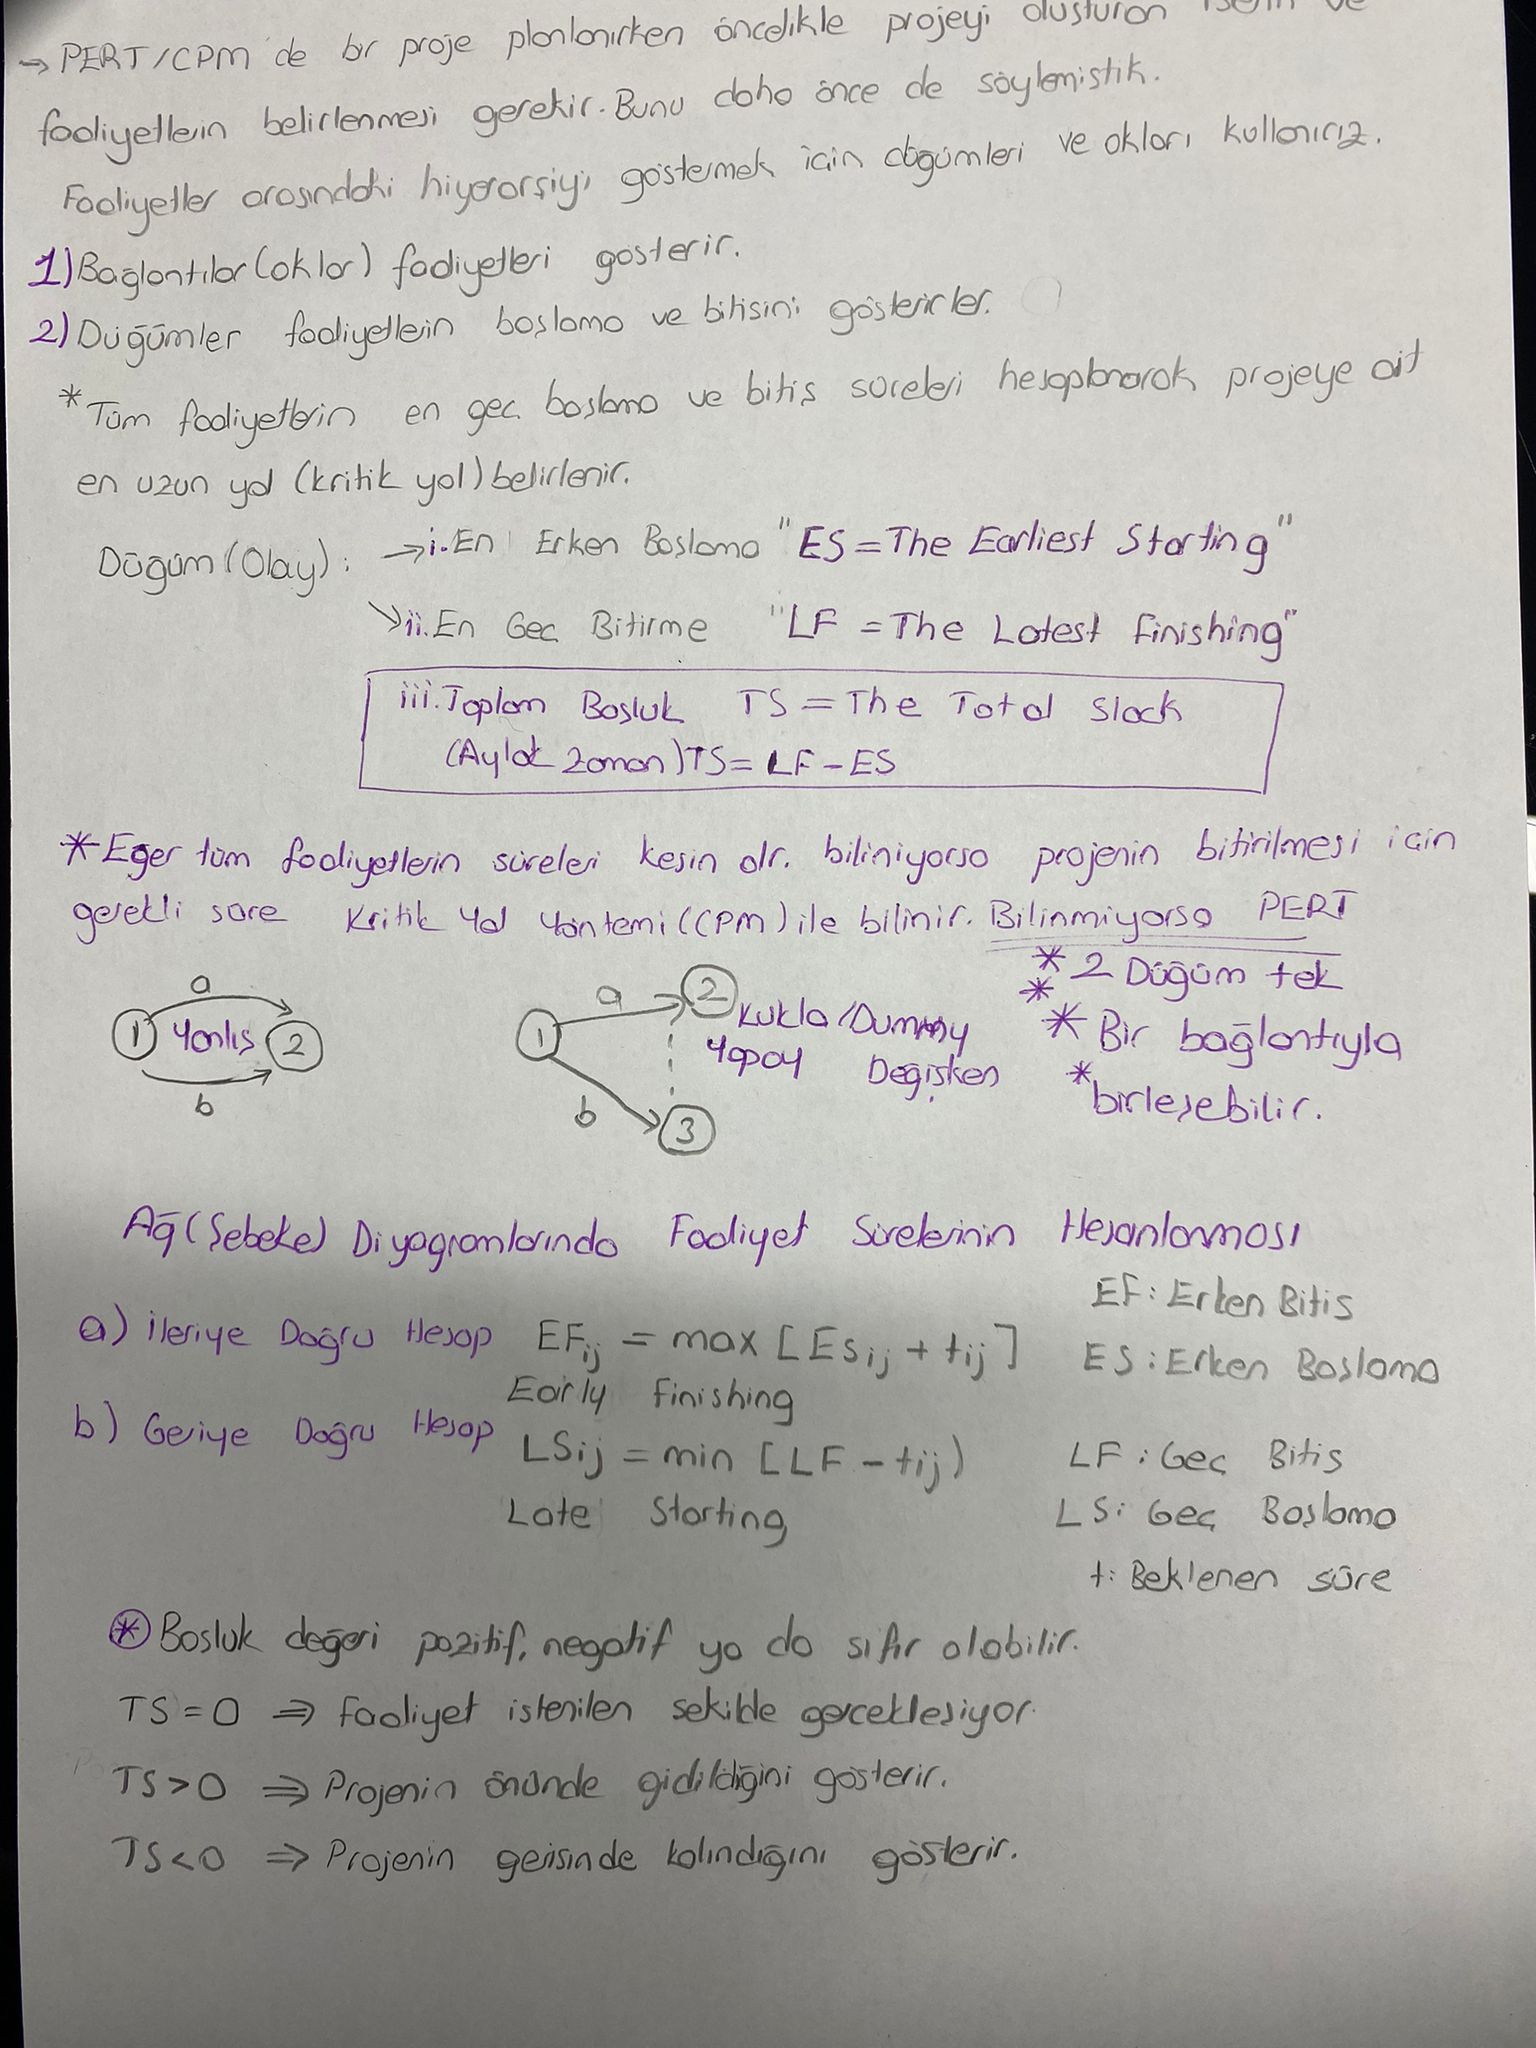 → PERT/CPM'de bir proje planlanırken öncelikle projeyi oluşturan işlerin ve
faaliyetlein belirlenmesi gerekir. Bunu daha önce de söylemiştik.
Faaliyetler arasındaki hiyerarşiyi göstermek için düğümleri ve okları kullanırız.
1) Bağlantılar (oklar) faaliyetleri gösterir.
2) Düğümler faaliyetlein başlama ve bitişini gösterirler.
* Tüm faaliyetlerin en geç başlama ve bitiş süreleri hesaplanarak projeye ait
en uzun yol (kritik yol) belirlenir.
Düğüm (Olay): → i. En Erken Başlama "ES = The Earliest Starting"
↘ ii. En Geç Bitirme "LF = The Latest Finishing"
iii. Toplam Boşluk TS = The Total Slack
(Aylak Zaman) TS = LF - ES
* Eğer tüm faaliyetlerin süreleri kesin olr. biliniyorsa projenin bitirilmesi için
gerekli süre Kritik Yol Yöntemi (CPM) ile bilinir. Bilinmiyorsa PERT
* 2 Düğüm tek
* * Bir bağlantıyla
* birleşebilir.
a
1 Yanlış 2
b
a 2
1 Kukla/Dummy
Yapay Değişken
b 3
Ağ (Şebeke) Diyagramlarında Faaliyet Sürelerinin Hesaplanması
EF: Erken Bitiş
a) İleriye Doğru Hesap EFij = max [ESij + tij] ES: Erken Başlama
Early Finishing
b) Geriye Doğru Hesap LSij = min [LF - tij) LF: Geç Bitiş
Late Starting LS: Geç Başlama
t: Beklenen süre
* Boşluk değeri pozitif, negatif ya da sıfır olabilir.
TS = 0 ⇒ Faaliyet istenilen şekilde gerçekleşiyor.
TS > 0 ⇒ Projenin önünde gidildiğini gösterir.
TS < 0 ⇒ Projenin gerisinde kalındığını gösterir.